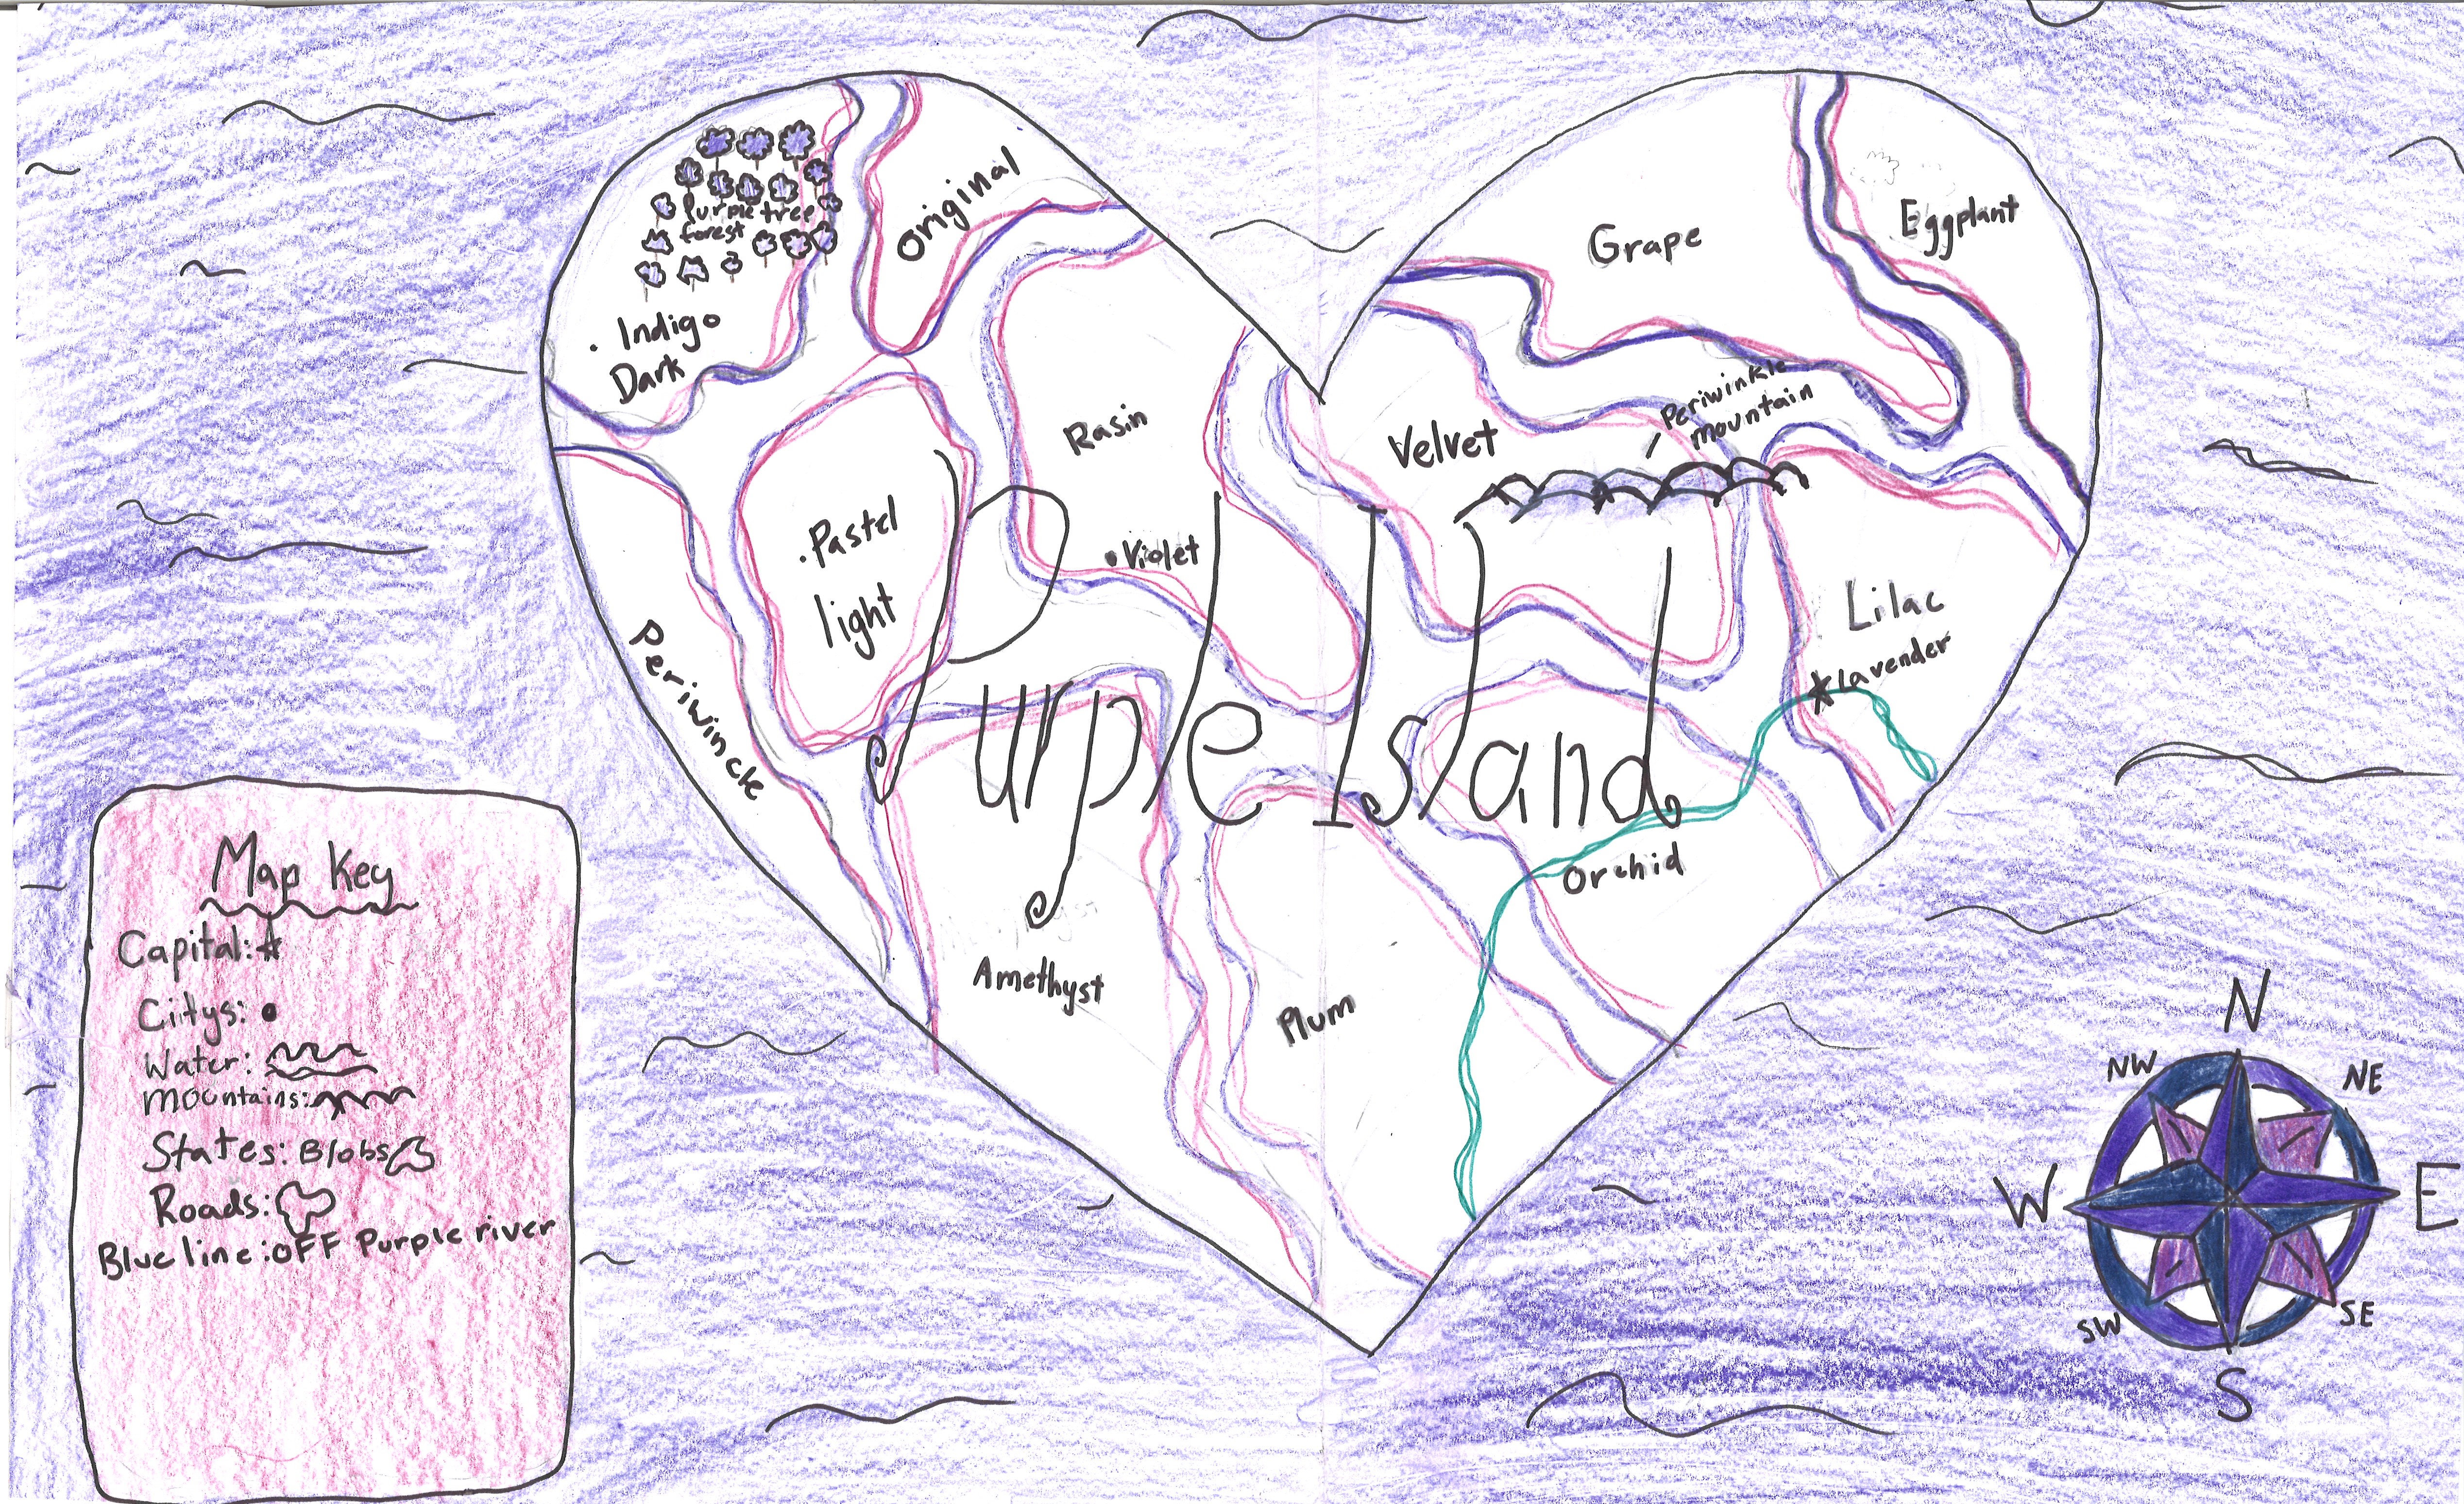 Purple tree
forest
. Indigo
Dark
Original
Rasin
• Violet
. Pastel
light
Periwincle
Grape
Eggplant
Velvet
Periwinkle
mountain
Lilac
Lavender
Purple Island
Amethyst
Plum
Orchid
Map Key
Capital:
Citys:
Water:
mountains:
States: Blobs
Roads:
Blue line: OFF Purple river
N
NW
NE
W
E
SW
SE
S